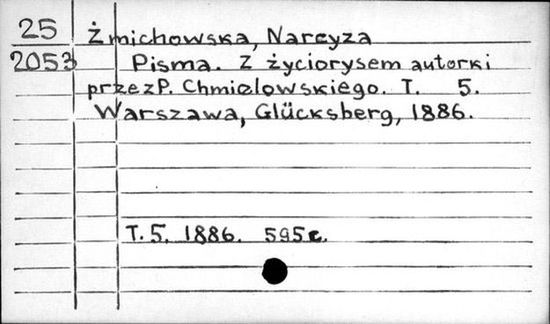 25
2053
Żmichowska, Narcyza
Pisma. Z życiorysem autorki
przez P. Chmielowskiego. T. 5.
Warszawa, Glücksberg, 1886.
T. 5. 1886. 595 c.